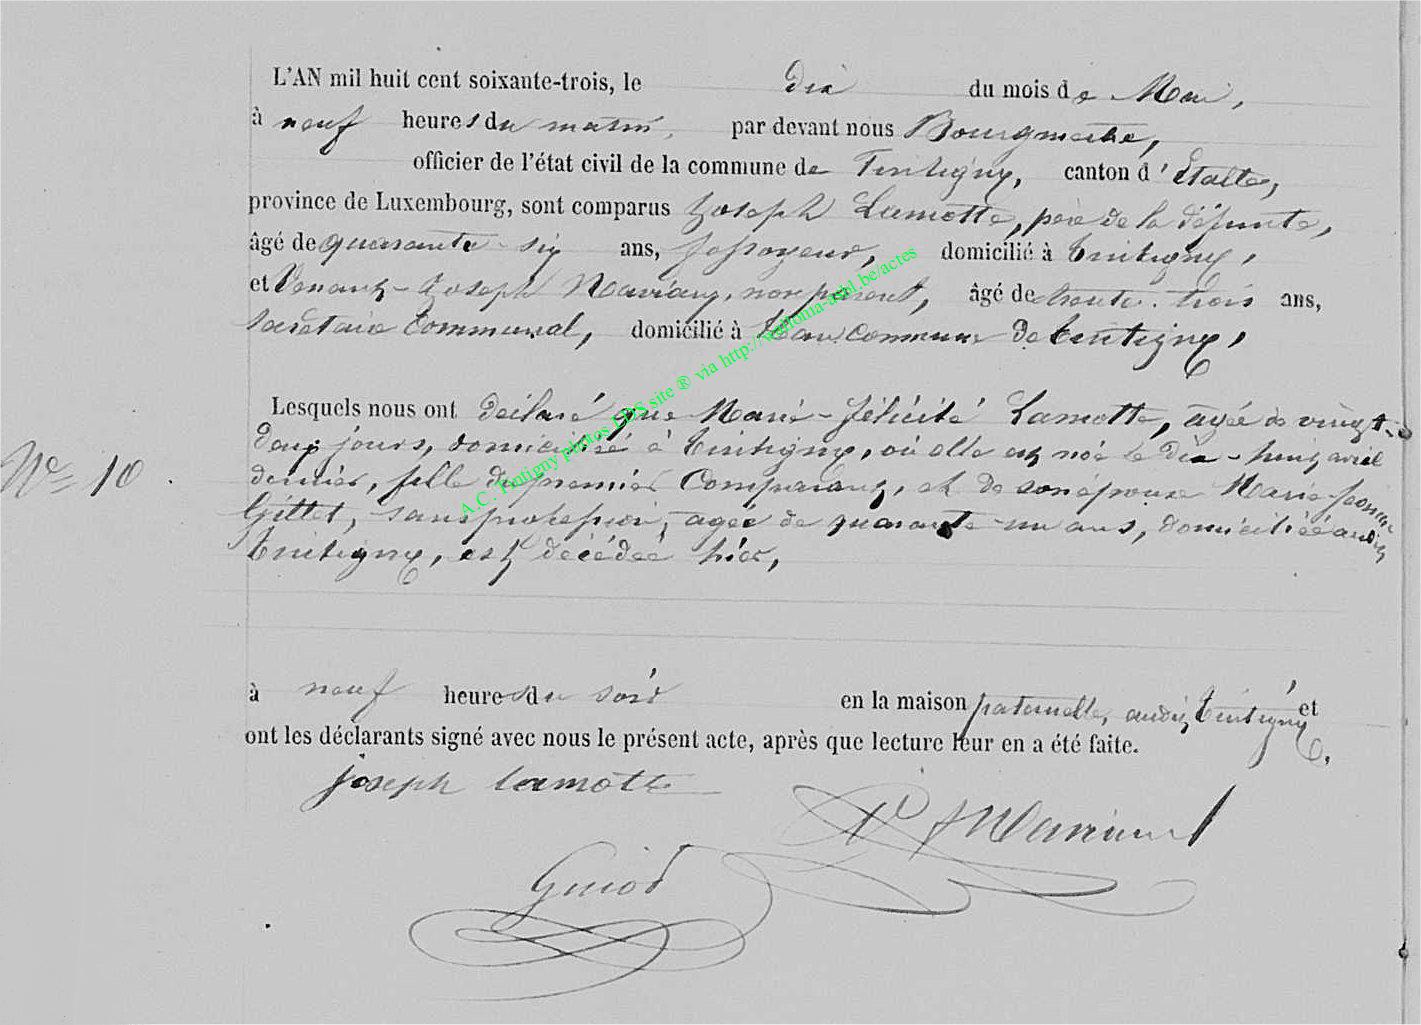 L'AN mil huit cent soixante-trois, le dix du mois de Mai,
à neuf heures du matin, par devant nous Bourgmestre,
officier de l'état civil de la commune de Tintigny, canton d'Etalle,
province de Luxembourg, sont comparus Joseph Lamotte, père de la défunte,
âgé de quarante-six ans, fossoyeur, domicilié à Tintigny,
et Venant-Joseph Maviany, non parent, âgé de trente-trois ans,
secrétaire communal, domicilié à commune de Tintigny,
Lesquels nous ont déclaré que Marie-Félicité Lamotte, agée de vingt-
deux jours, domiciliée à Tintigny, où elle est née le dix-huit avril
N° 10
dernier, fille du premier Comparant, et de son épouse Marie-Jeanne
Gillet, sans profession, agée de quarante-un ans, domiciliée audit
Tintigny, est décédée hier,
à neuf heures du soir en la maison paternelle, audit Tintigny, et
ont les déclarants signé avec nous le présent acte, après que lecture leur en a été faite.
joseph lamotte
Guiot
A.C. Tintigny photos LDS site ® via http://wallonia-asbl.be/actes